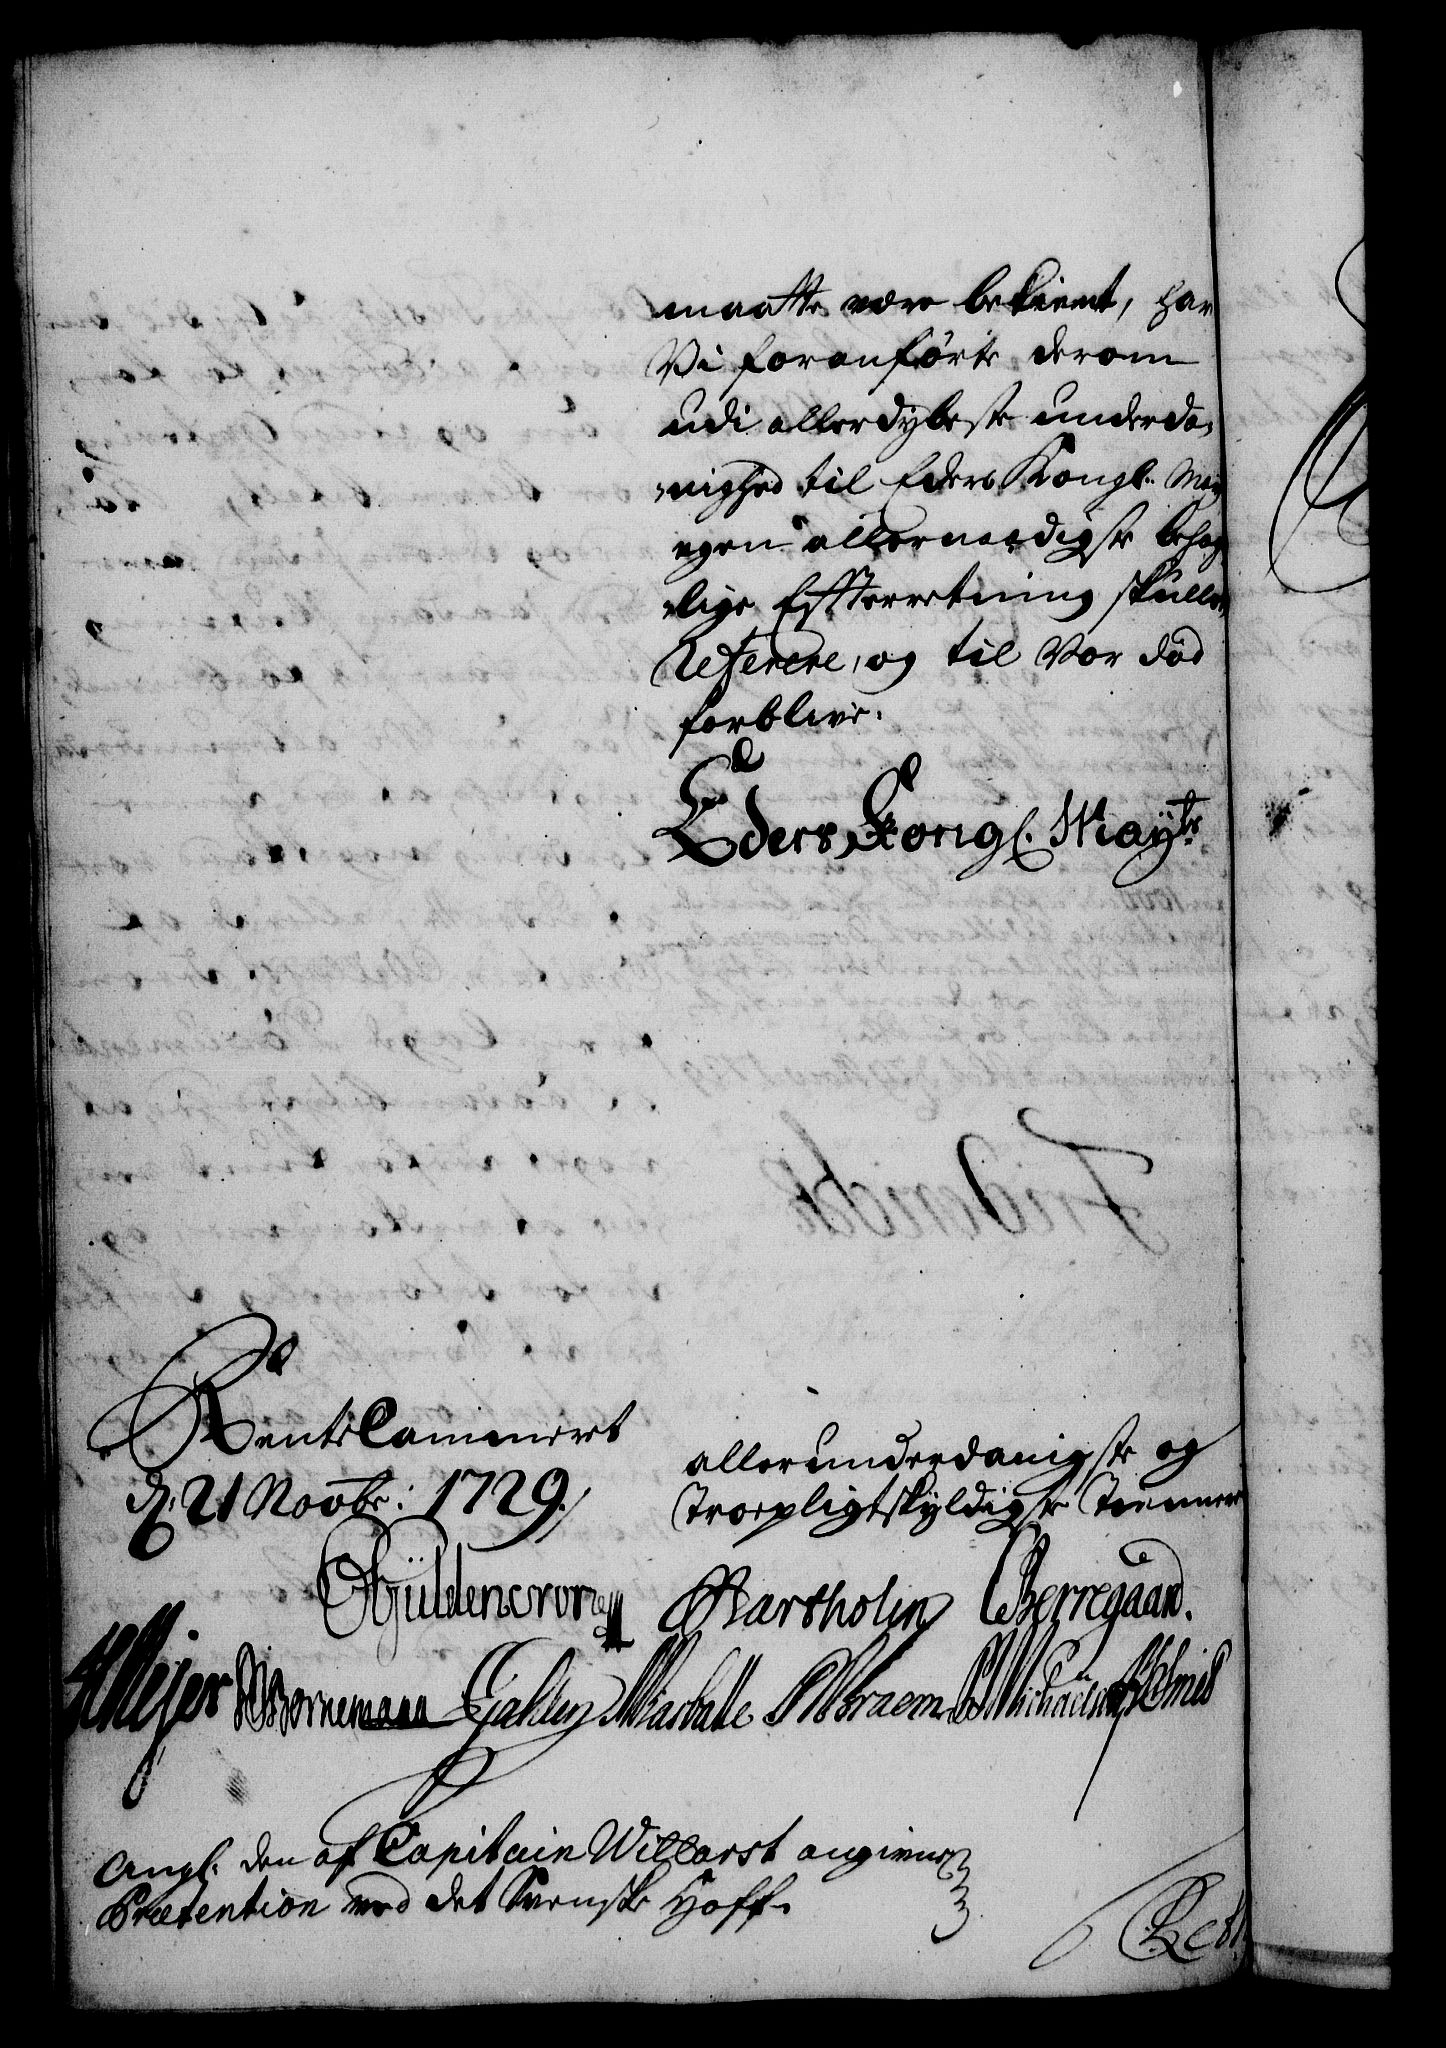 maatte være bekient, har
Vi foranførte derom
udi allerdybeste underda-
-nighed til Eders Kongl. May
egen allernaadigste behag
-lige Effterretning skulle
Referere, og til Vor død
forblive.
Eders Kongl. Mayts.
RenteCammeret
d. 21 Novbr: 1729.
allerunderdanigste og
Troepligtskyldigste Tienner
Güldencrone
Bartholin
Berregaard.
Mejer
Bornemann
Braem
Michaelsen
Angl. den af Capitain Willarst angivne
Prætention ved det Svenske Hoff.